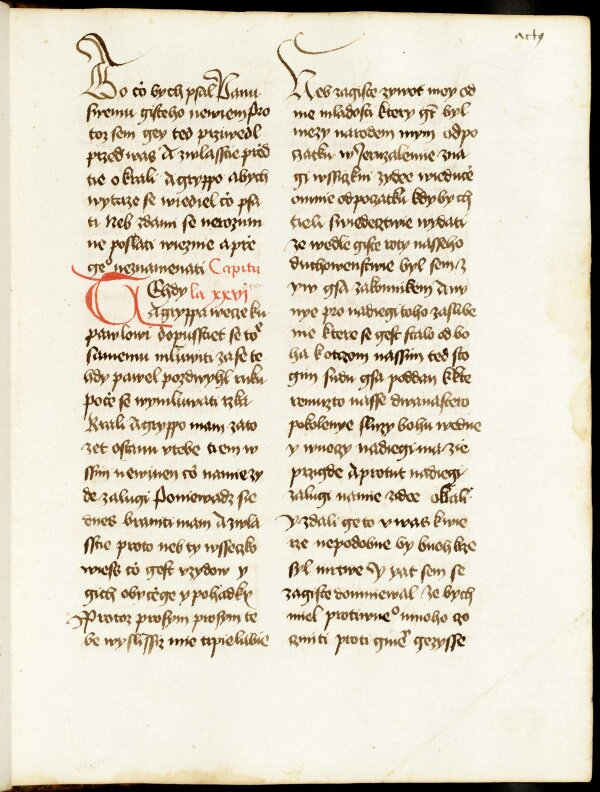 actꝰ
Bo čo bych psal Panu
swemu gisteho newiem Pro
toz sem gey ted przwedl
przed was A zwlasscie przed
tie o krali Agryppo abych
wytieze se wiediel čo psa
ti Neb zdam se nerozum
ne poslati wiezme a prie
ge° neznamenati Capitu
Tehdy la xxvi
Agryppa wecie ku
pawlowi dopussciet se toᵉ
samemu mluwiti za se te
hdy pawel pozdwyhl ruku
poče se wymluwati rzka
Krali Agryppo mam za to
zet ostanu v tebe trem w
ssim newinen čo namiezy
de zalugi Poniewadz sie
dnes braniti mam A zwla
sscie proto neb ty wsseczko
wiess čo gest v zydow y
gich obyčege y pohadky
Protoz prosym prosym te
be wyslissiz mie trpieliwie
Neb zagiste zywot moy od
me mladosti ktery gt byl
mezy narodem mym od po
čatku w Jeruzalemie zna
gi wssiczkni zydee wieduce
o mnie od poczatku kdy bych
tieli swiedeztwie wydati
ze wedle giste roty nasseho
duchowenstwie byl sem z
yw gsa zakonnikem A w
nye pro nadiegi toho zaslibe
nie ktere se gest stalo od bo
ha k otczom nassim ted sto
gim sudu gsa poddan k kte
remuzto nasse dwanastero
pokolenye sluzy bohu wedne
y w noczy nadiegi ma zie
przigde A protut nadiegi
zalugi na mie zidee o krali
Y zdali ge to v was k wie
rze nepodobne by buoh krze
syl mrtwe Y yat sem se
zagiste domniewal ze bych
miel protiwne° mnoho czo
czniti proti gmeᵉ gezysse